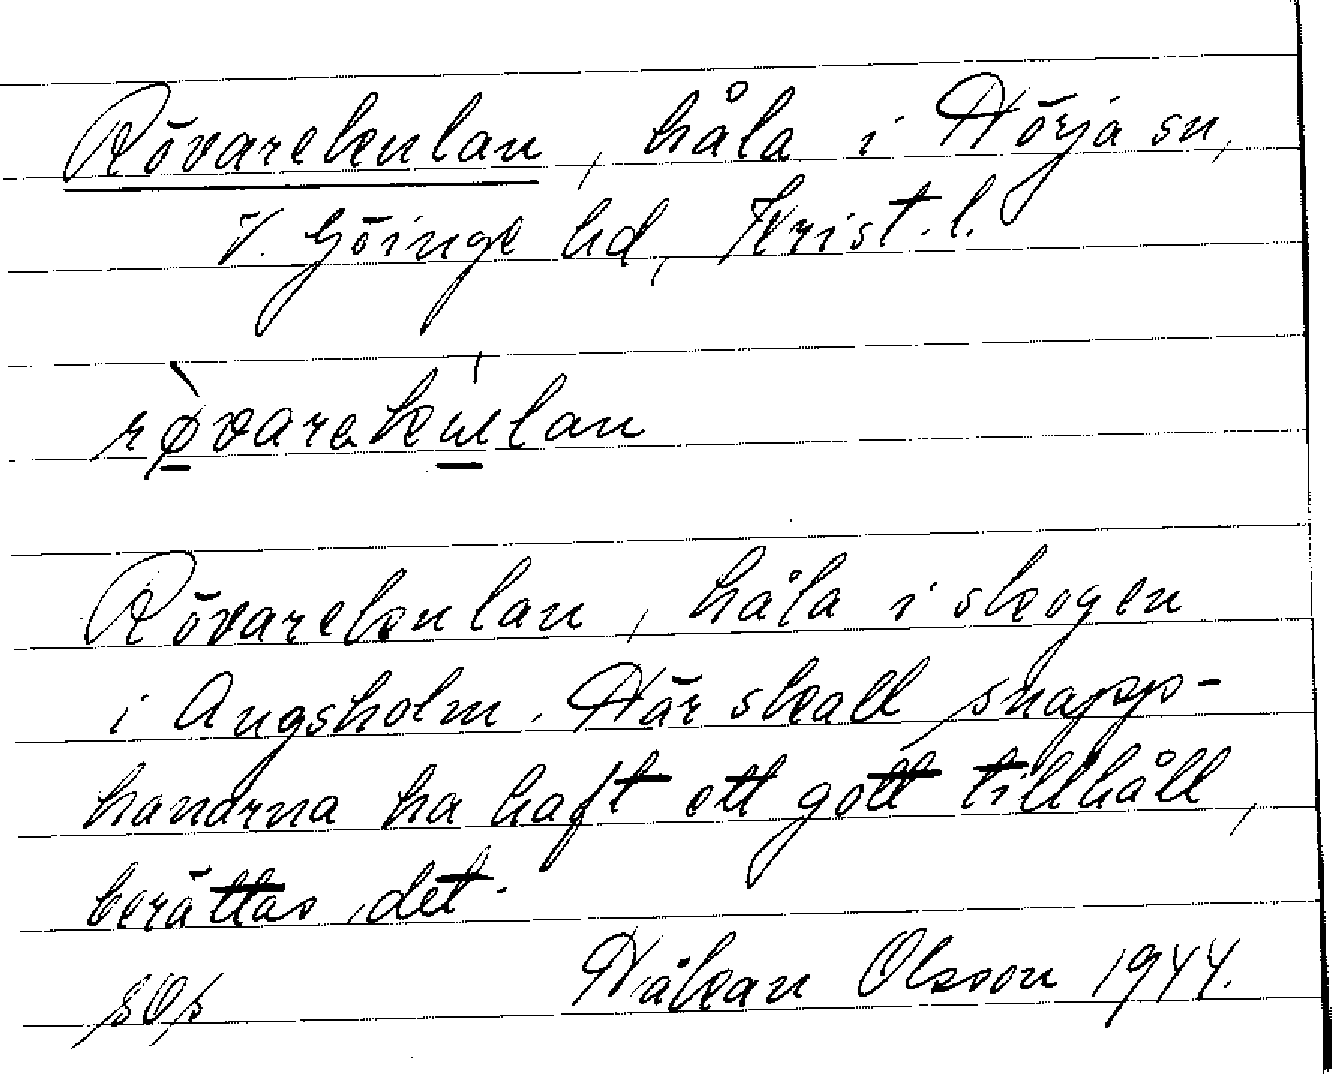 Rövarekulan, håla i Hörja sn,
V. Göinge hd, Krist. l.
rø̀varekúlan
Rövarekulan, håla i skogen
i Angsholm. Här skall snapp-
hanarna ha haft ett gott tillhåll,
berättas det.
Håkan Olsson 1944.